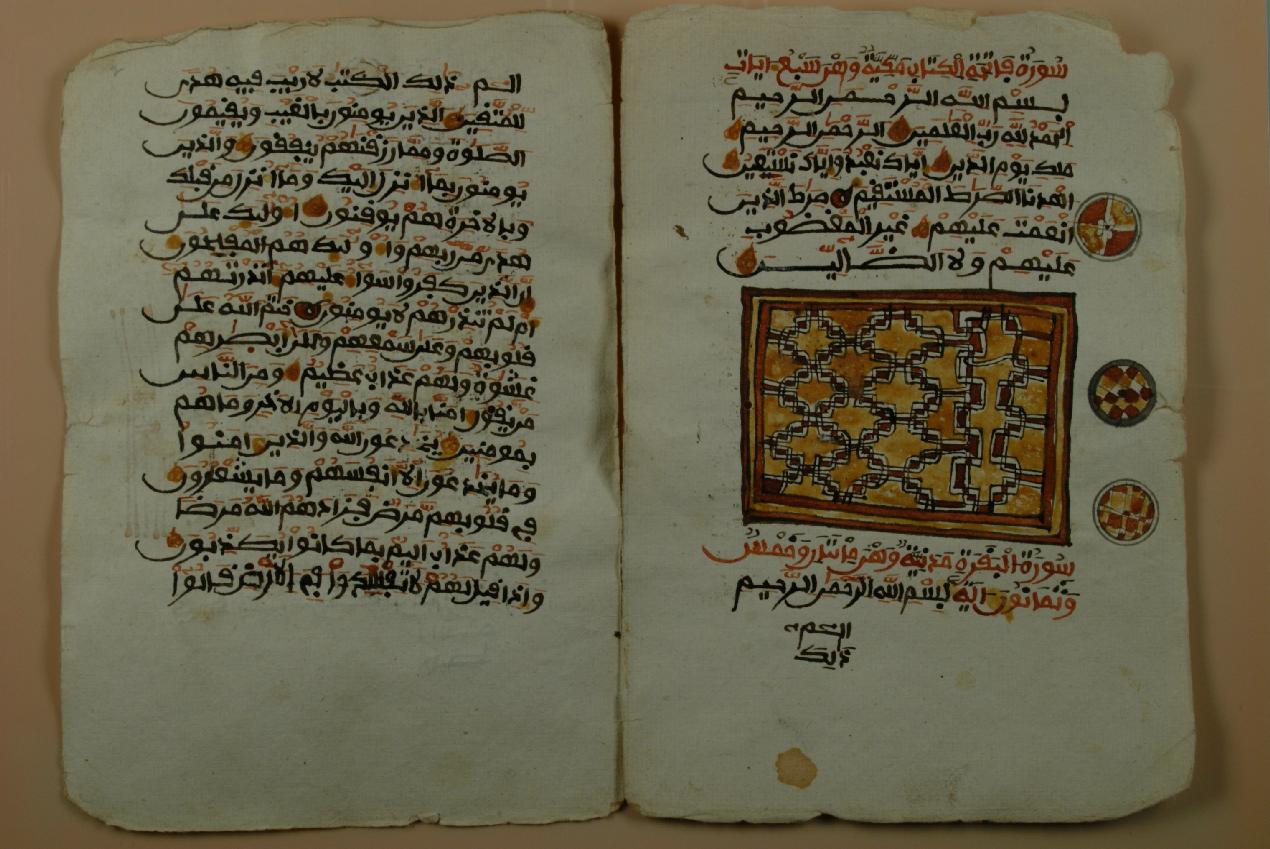 سورة فاتحة الكتاب مكية وهي سبع ايات
بسم الله الرحمن الرحيم
الحمد لله رب العلمين الرحمن الرحيم
ملك يوم الدين اياك نعبد واياك نستعين
اهدنا الصرط المستقيم صرط الذين
انعمت عليهم غير المغضوب
عليهم ولا الضالين
سورة البقرة مدنية وهي مائتان وخمس
وثمانون اية بسم الله الرحمن الرحيم
الم
ذلك
الم ذلك الكتب لا ريب فيه هدى
للمتقين الذين يومنون بالغيب ويقيمون
الصلوة ومما رزقنهم ينفقون والذين
يومنون بما انزل اليك وما انزل من قبلك
وبالاخرة هم يوقنون اولئك على
هدى من ربهم واولئك هم المفلحون
ان الذين كفروا سوا عليهم انذرتهم
ام لم تنذرهم لا يومنون ختم الله على
قلوبهم وعلى سمعهم وعلى ابصرهم
غشوة ولهم عذاب عظيم ومن الناس
من يقول امنا بالله وباليوم الاخر وما هم
بمومنين يخدعون الله والذين امنوا
وما يخدعون الا انفسهم وما يشعرون
في قلوبهم مرض فزادهم الله مرضا
ولهم عذاب اليم بما كانوا يكذبون
واذا قيل لهم لا تفسدوا في الارض قالوا